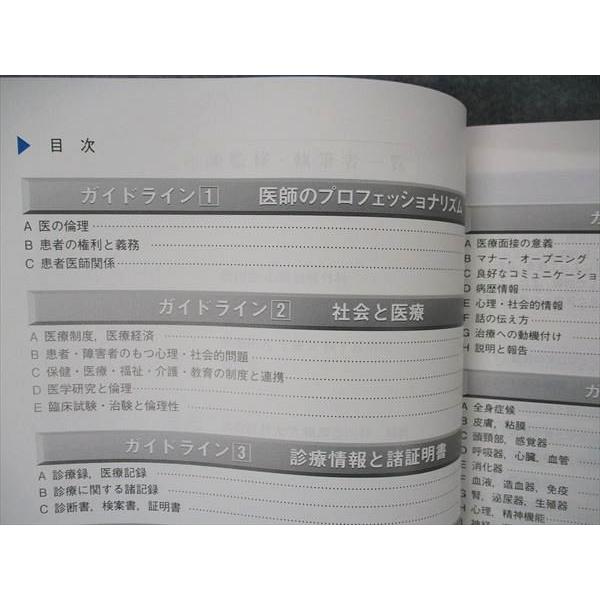 目 次
ガイドライン1 医師のプロフェッショナリズム
A 医の倫理
B 患者の権利と義務
C 患者医師関係
ガイドライン2 社会と医療
A 医療制度，医療経済
B 患者・障害者のもつ心理・社会的問題
C 保健・医療・福祉・介護・教育の制度と連携
D 医学研究と倫理
E 臨床試験・治験と倫理性
ガイドライン3 診療情報と諸証明書
A 診療録，医療記録
B 診療に関する諸記録
C 診断書，検案書，証明書
A 医療面接の意義
B マナー，オープニング
C 良好なコミュニケーショ
D 病歴情報
E 心理・社会的情報
F 話の伝え方
G 治療への動機付け
H 説明と報告
A 全身症候
B 皮膚，粘膜
C 頭頸部，感覚器
D 呼吸器，心臓，血管
E 消化器
F 血液，造血器，免疫
G 腎，泌尿器，生殖器
H 心理，精神機能